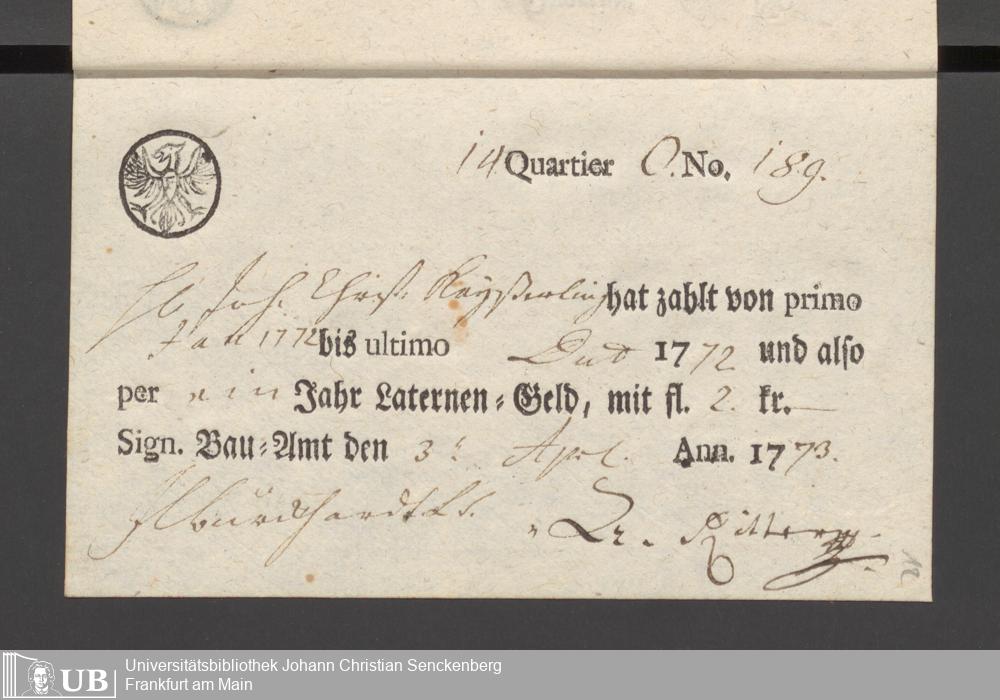 14 Quartier O. No. 189.
Joh. Christ. hat zahlt von primo
Jan 1772 bis ultimo 1772 und also
per ein Jahr Laternen-Geld, mit fl. 2. kr. —
Sign. Bau-Amt den 3t Apl. Ann. 1773.
Burckhardt
Ritter
12
UB Universitätsbibliothek Johann Christian Senckenberg
Frankfurt am Main